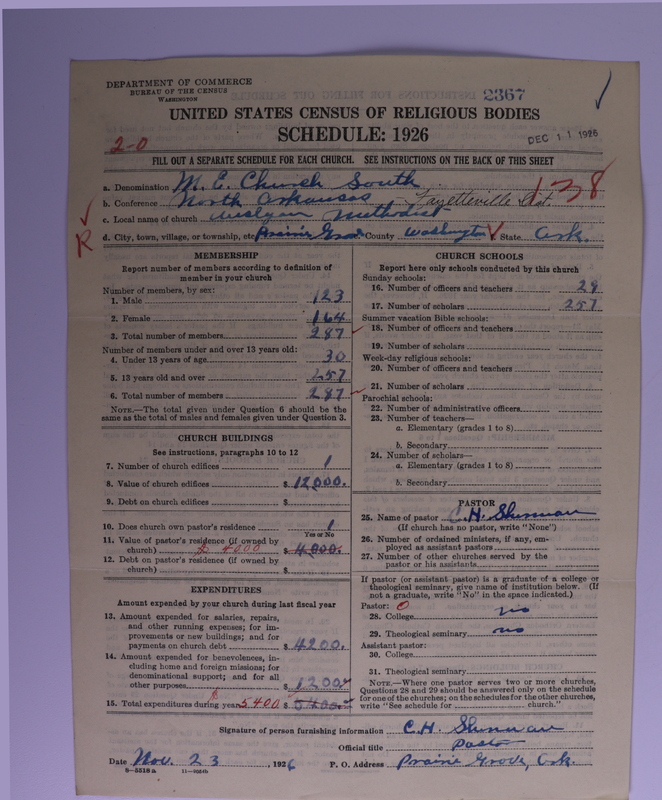 DEPARTMENT OF COMMERCE
BUREAU OF THE CENSUS
WASHINGTON
2367
UNITED STATES CENSUS OF RELIGIOUS BODIES
SCHEDULE: 1926
DEC 11 1926
2-0
FILL OUT A SEPARATE SCHEDULE FOR EACH CHURCH. SEE INSTRUCTIONS ON THE BACK OF THIS SHEET
a. Denomination M. E. Church South
138
b. Conference North Arkansas Fayetteville Dist.
c. Local name of church Weslyan Methodist
d. City, town, village, or township, etc. Prairie Grove County Washington State Ark.
R
MEMBERSHIP
Report number of members according to definition of
member in your church
Number of members, by sex:
1. Male 123
2. Female 164
3. Total number of members 287
Number of members under and over 13 years old:
4. Under 13 years of age 30
5. 13 years old and over 257
6. Total number of members 287
NOTE.—The total given under Question 6 should be the
same as the total of males and females given under Question 3.
CHURCH BUILDINGS
See instructions, paragraphs 10 to 12
7. Number of church edifices 1
8. Value of church edifices $ 12000.
9. Debt on church edifices $
10. Does church own pastor's residence 1
Yes or No
11. Value of pastor's residence (if owned by
church) $ 4000 $ 4000.
12. Debt on pastor's residence (if owned by
church) $
EXPENDITURES
Amount expended by your church during last fiscal year
13. Amount expended for salaries, repairs,
and other running expenses; for im-
provements or new buildings; and for
payments on church debt $ 4200.
14. Amount expended for benevolences, in-
cluding home and foreign missions; for
denominational support; and for all
other purposes $ 1200
15. Total expenditures during year $ 5400 $ 5400
CHURCH SCHOOLS
Report here only schools conducted by this church
Sunday schools:
16. Number of officers and teachers 29
17. Number of scholars 257
Summer vacation Bible schools:
18. Number of officers and teachers
19. Number of scholars
Week-day religious schools:
20. Number of officers and teachers
21. Number of scholars
Parochial schools:
22. Number of administrative officers
23. Number of teachers—
a. Elementary (grades 1 to 8)
b. Secondary
24. Number of scholars—
a. Elementary (grades 1 to 8)
b. Secondary
PASTOR
25. Name of pastor C. H. Sherman
(If church has no pastor, write "None")
26. Number of ordained ministers, if any, em-
ployed as assistant pastors
27. Number of other churches served by the
pastor or his assistants
If pastor (or assistant pastor) is a graduate of a college or
theological seminary, give name of institution below. (If
not a graduate, write "No" in the space indicated.)
Pastor: 0
28. College no
29. Theological seminary no
Assistant pastor:
30. College
31. Theological seminary
NOTE.—Where one pastor serves two or more churches,
Questions 28 and 29 should be answered only on the schedule
for one of the churches; on the schedules for the other churches,
write "See schedule for church."
Signature of person furnishing information C. H. Sherman
Official title Pastor
Date Nov. 23, 1926 P. O. Address Prairie Grove, Ark.
8—5518a 11—9264b